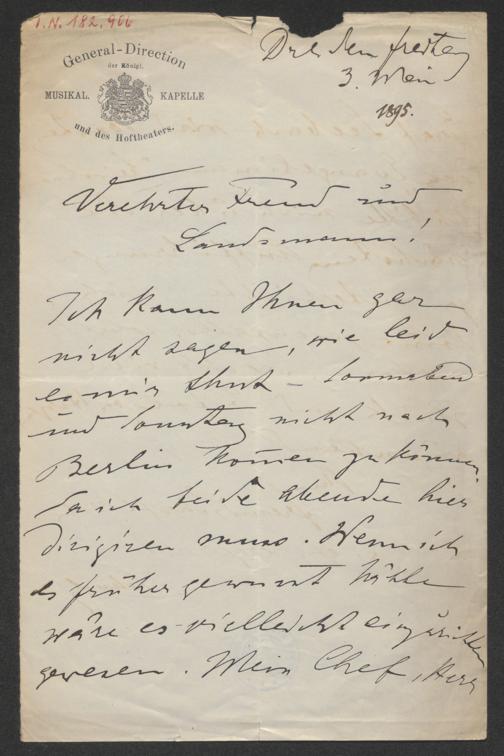 I.N. 182.966
General-Direction
der Königl.
MUSIKAL. KAPELLE
und des Hoftheaters.
Dresden freitag
3. Mai
1895.
Verehrter Freund und
Landsmann!
Ich kann Ihnen gar
nicht sagen, wie leid
es mir thut – Sonnabend
und Sonntag nicht nach
Berlin kom̅en zu können.
Da ich beide abende hier
dirigiren muss. Wenn ich
es früher gewusst hätte
wäre es vielleicht einzurichten
gewesen. Mein Chef, Herr